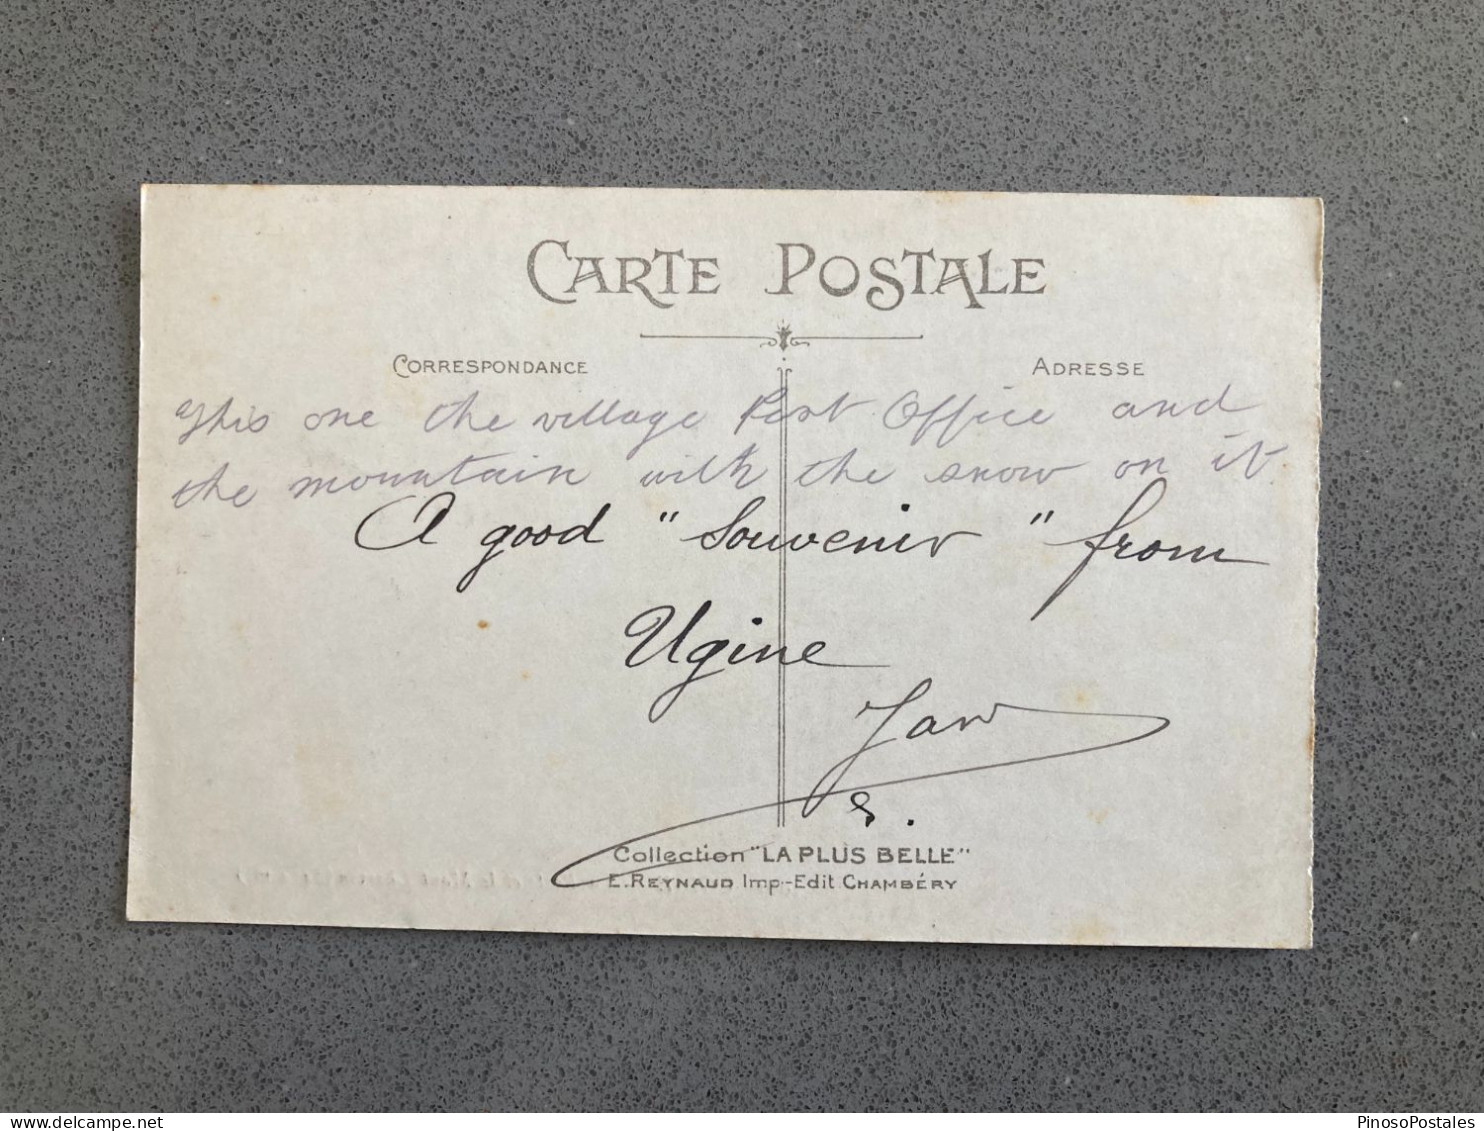 CARTE POSTALE
CORRESPONDANCE
ADRESSE
This one the village Post Office and
the mountain with the snow on it.
A good "Souvenir" from
Ugine
Collection "LA PLUS BELLE"
E. REYNAUD Imp-Edit CHAMBÉRY
PinosoPostales